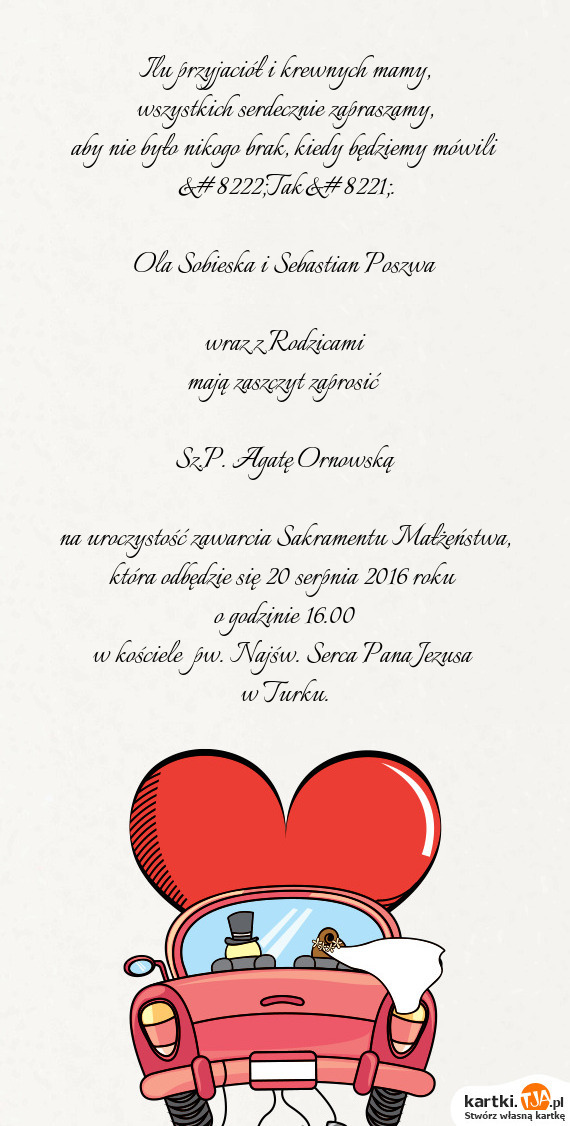 Ilu przyjaciół i krewnych mamy,
wszystkich serdecznie zapraszamy,
aby nie było nikogo brak, kiedy będziemy mówili
&#8222;Tak&#8221;.
Ola Sobieska i Sebastian Poszwa
wraz z Rodzicami
mają zaszczyt zaprosić
Sz.P. Agatę Ornowską
na uroczystość zawarcia Sakramentu Małżeństwa,
która odbędzie się 20 serpnia 2016 roku
o godzinie 16.00
w kościele pw. Najśw. Serca Pana Jezusa
w Turku.
kartki.TJA.pl
Stwórz własną kartkę